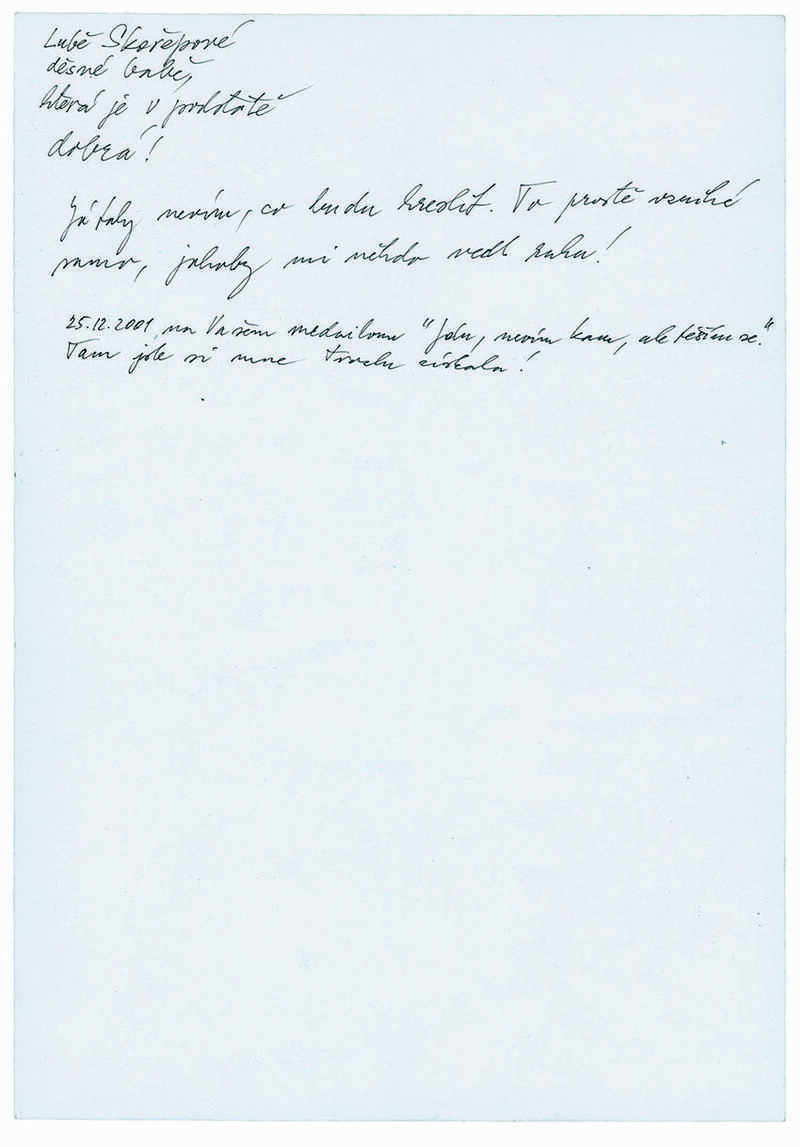 Lubě Skořepové
děsné babě,
která je v podstatě
dobrá!
Já taky nevím, co budu kreslit. To prostě vzniká
samo, jakoby mi někdo vedl ruku!
25.12.2001 na Vašem medailonu "Jdu, nevím kam, ale těším se."
Tam jste si mne trochu získala!